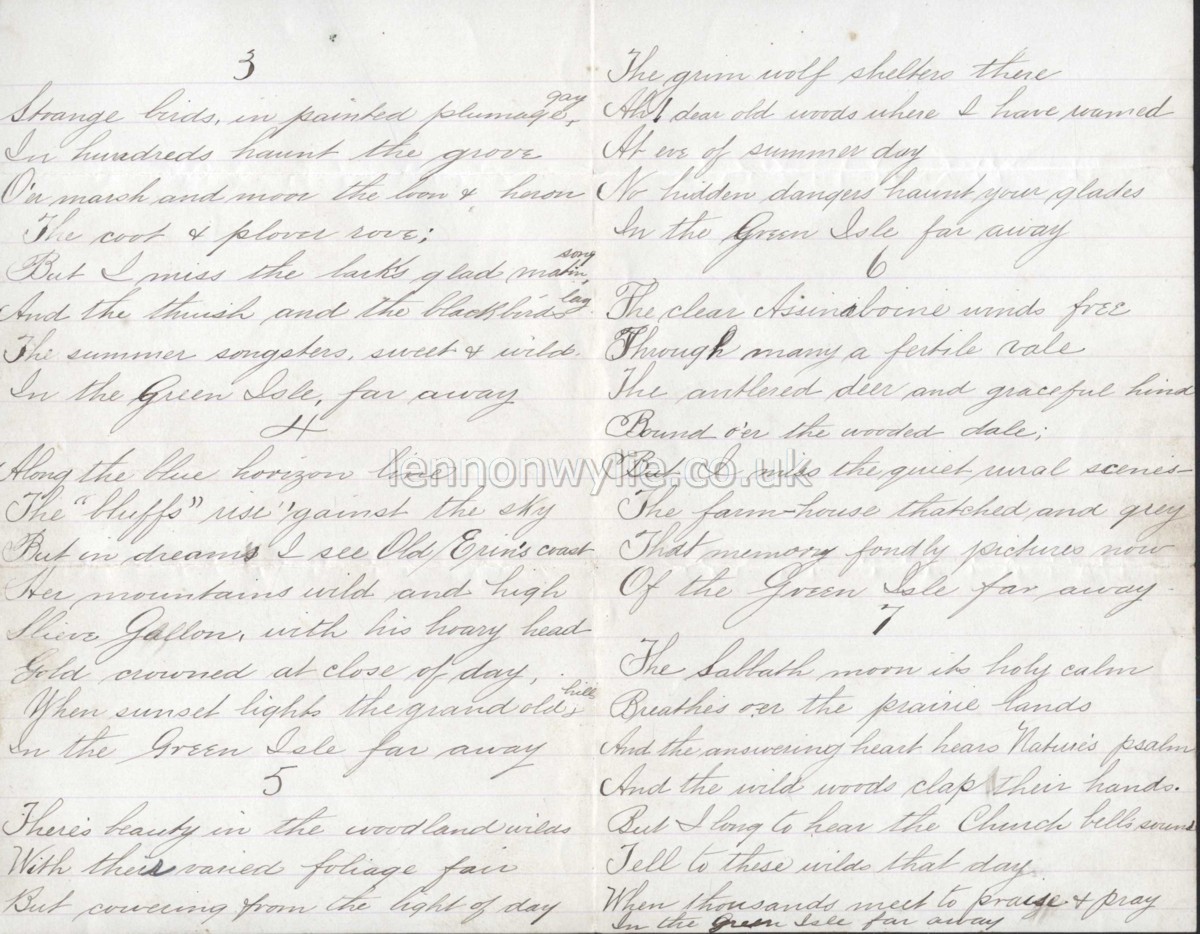 3
Strange birds, in painted plumage gay,
In hundreds haunt the grove
O'er marsh and moor the loon & heron
The coot & plover rove;
But I miss the lark's glad matin song
And the thrush and the blackbird's lay.
The summer songsters, sweet & wild.
In the Green Isle, far away
4
Along the blue horizon line
The "bluffs" rise 'gainst the sky
But in dreams I see Old Erin's coast
Her mountains wild and high
Slieve Gallon, with his hoary head
Gold crowned at close of day,
When sunset lights the grand old hills
In the Green Isle far away
5
There's beauty in the woodland wilds
With their varied foliage fair
But cowering from the light of day
The grim wolf shelters there
Ah! dear old woods where I have roamed
At eve of summer day
No hidden dangers haunt your glades
In the Green Isle far away
6
The clear Assinaboine winds free
Through many a fertile vale
The antlered deer and graceful hind
Bound o'er the wooded dale;
But I miss the quiet rural scenes
The farm-house thatched and grey
That memory fondly pictures now
Of the Green Isle far away.
7
The Sabbath morn its holy calm
Breathes o'er the prairie lands
And the answering heart hears "Nature's psalm
And the wild woods clap their hands.
But I long to hear the Church bells sound
Tell to these wilds that day
When thousands meet to praise & pray
In the Green Isle far away
lennonwylie.co.uk